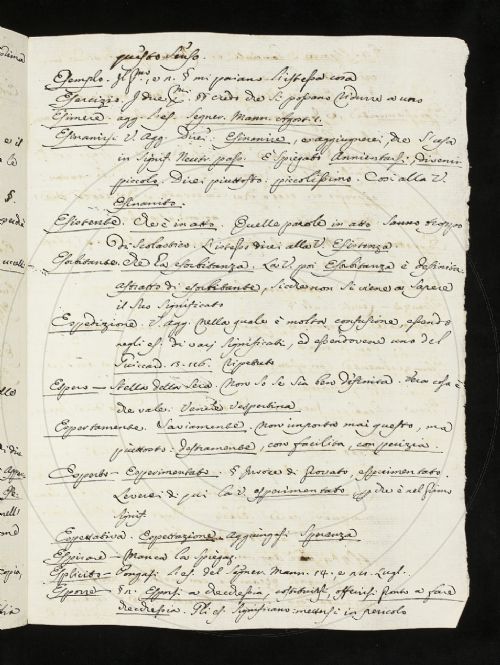 questo senso.
Esempio. Il e n. § mi paiono l'istessa cosa
Esercizio. I due § credo che si possano ridurre a uno
Esimere agg. l'es. Segner. Mann.
Esinanirsi V. Agg. direi. Esinanire, e aggiugnerei, che s'usa
in signif. Neutr. pass. È spiegato Annientarsi, divenir
piccolo. Direi piuttosto, piccolissimo. Così alla V.
Esinanito.
Esistente. Che è in atto. Quelle parole in atto sanno troppo
di scolastico. L'istesso direi alla V. Esistenza
Esorbitante. Che ha esorbitanza. La V. poi Esorbitanza è definita
astratto di esorbitante, sicchè non si viene a sapere
il suo significato
Espedizione. V. agg. nella quale è molta confusione, essendo
negli es. di varj significati, ed essendovene uno del
Guicciard. 13. 116. ripetuto
Espero — Stella della sera. Non so se sia ben definita.
che vale. Venere vespertina
Espertamente. Saviamente. Non importa mai questo, ma
piuttosto. Destramente, con facilità, con perizia.
Esperto — Esperimentato. § Invece di provato, esperimentato
leverei di più la V. esperimentato che è nel primo
signif.
Espettativa. Espettazione. Aggiungasi Speranza
Espirare — Manca la spiegaz.
Esplicito — Pongasi l'es. del Segner. Mann. 14. e
Esporre — §n. Esporsi a checchessia, offerirsi pronto a fare
checchessia. Gli es. significano mettersi in pericolo